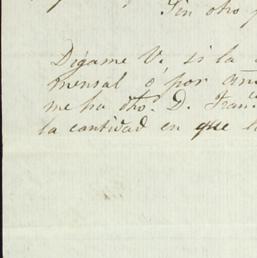 Sin otro
Dígame V. si la
mensal ó por
me ha dho. D. Fran.co
la cantidad en que